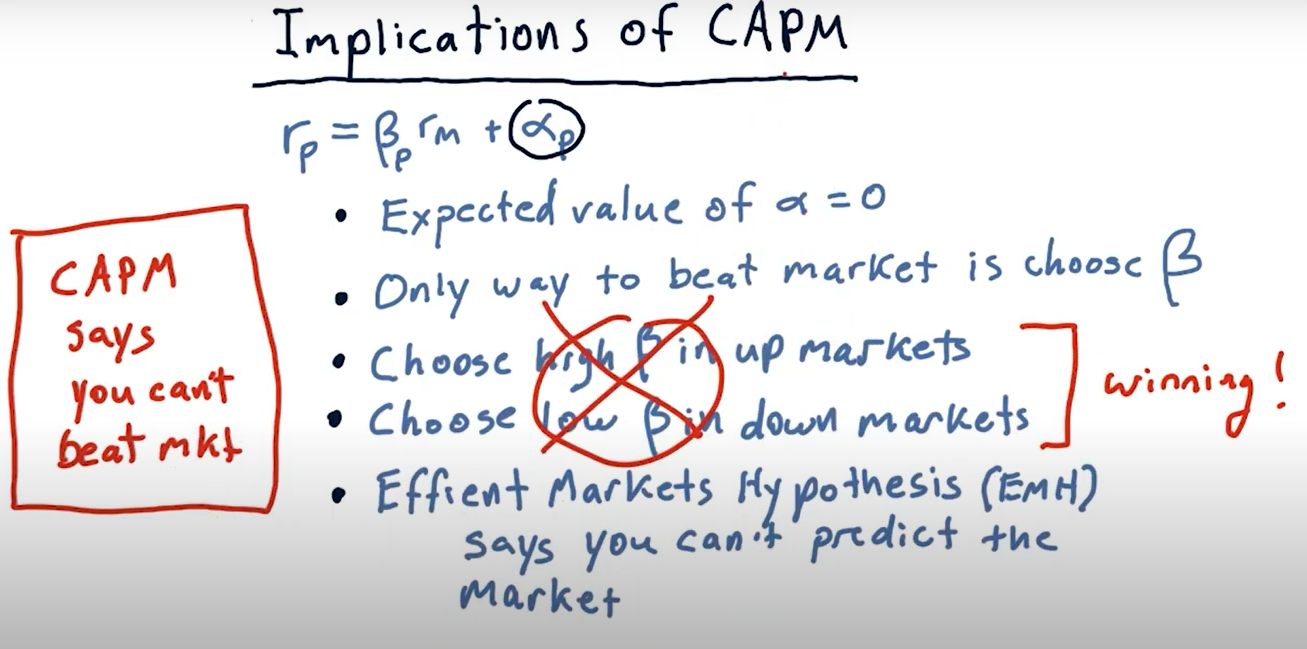 Implications of CAPM
rp = βp rm + αp
• Expected value of α = 0
• Only way to beat market is choose β
• Choose high β in up markets
• Choose low β in down markets
winning!
• Effient Markets Hypothesis (EMH)
says you can't predict the
Market
CAPM
says
you can't
beat mkt